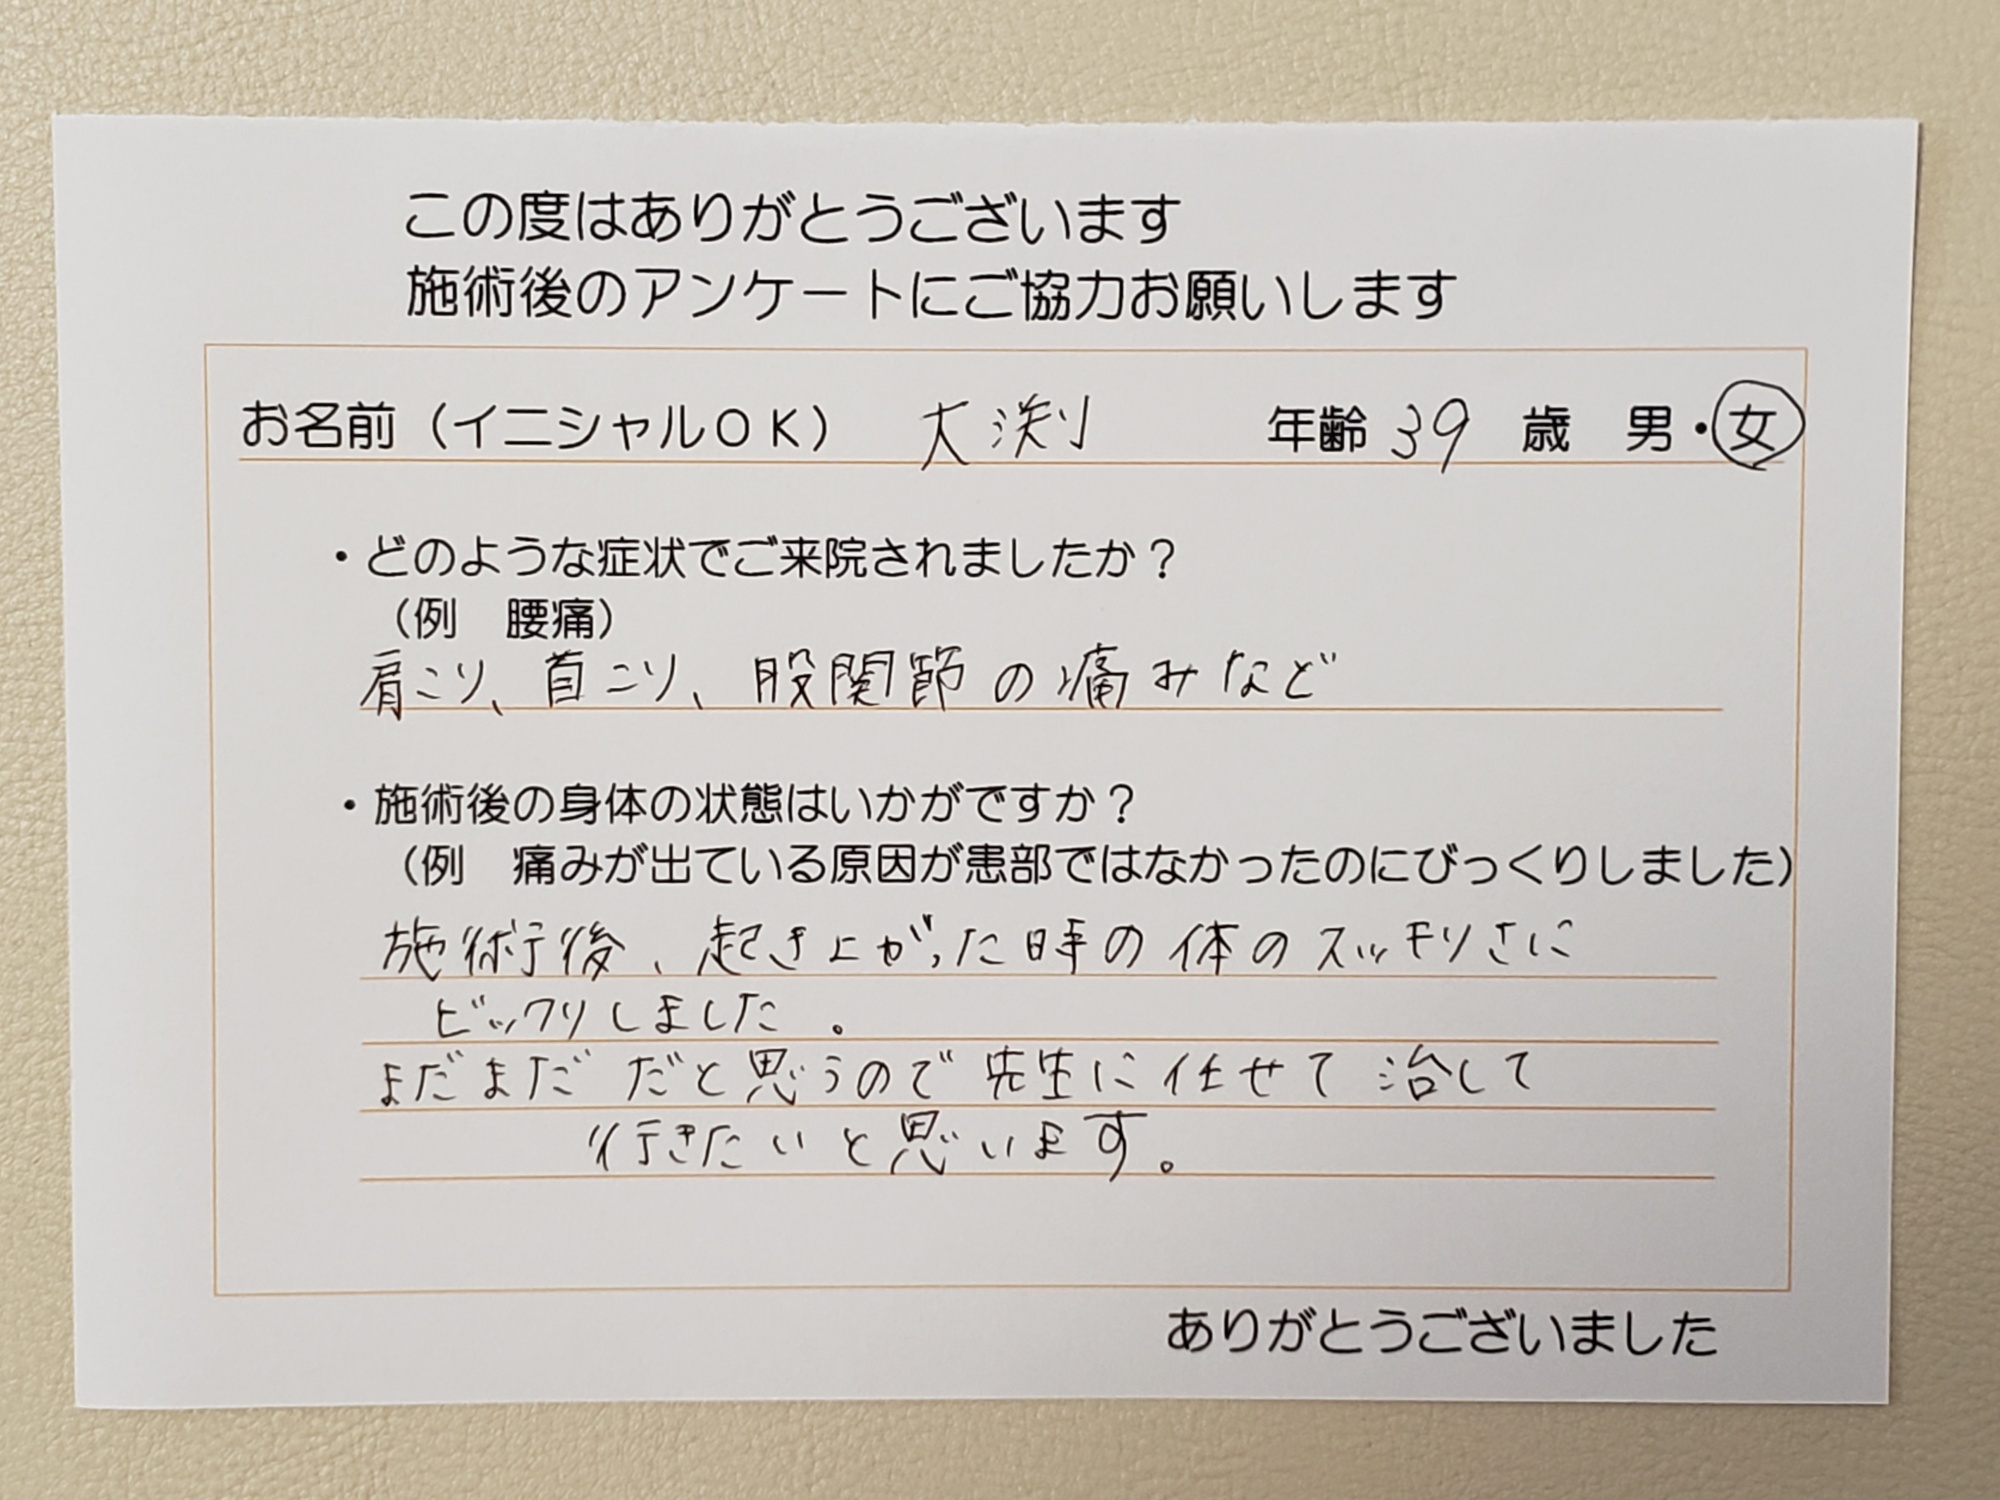 この度はありがとうございます
施術後のアンケートにご協力お願いします
お名前（イニシャルOK） 大渕 年齢 39 歳 男・女
・どのような症状でご来院されましたか？
（例 腰痛）
肩こり、首こり、股関節の痛みなど
・施術後の身体の状態はいかがですか？
（例 痛みが出ている原因が患部ではなかったのにびっくりしました）
施術後、起き上がった時の体のスッキリさに
ビックリしました。
まだまだだと思うので先生に任せて治して
行きたいと思います。
ありがとうございました